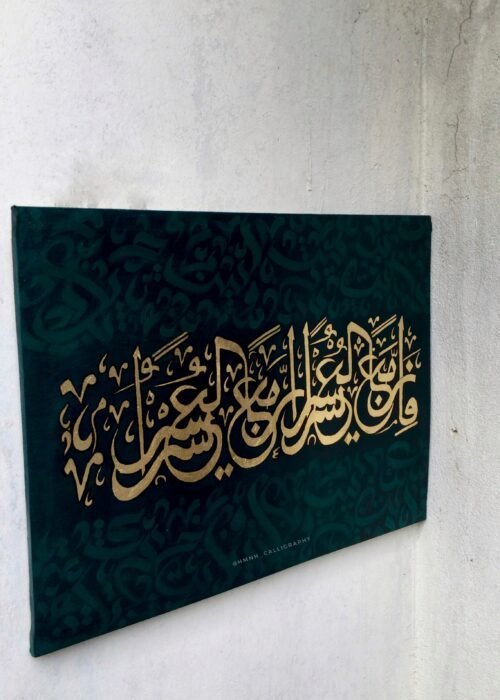 فَإِنَّ مَعَ الْعُسْرِ يُسْرًا إِنَّ مَعَ الْعُسْرِ يُسْرًا
@HMNH_CALLIGRAPHY